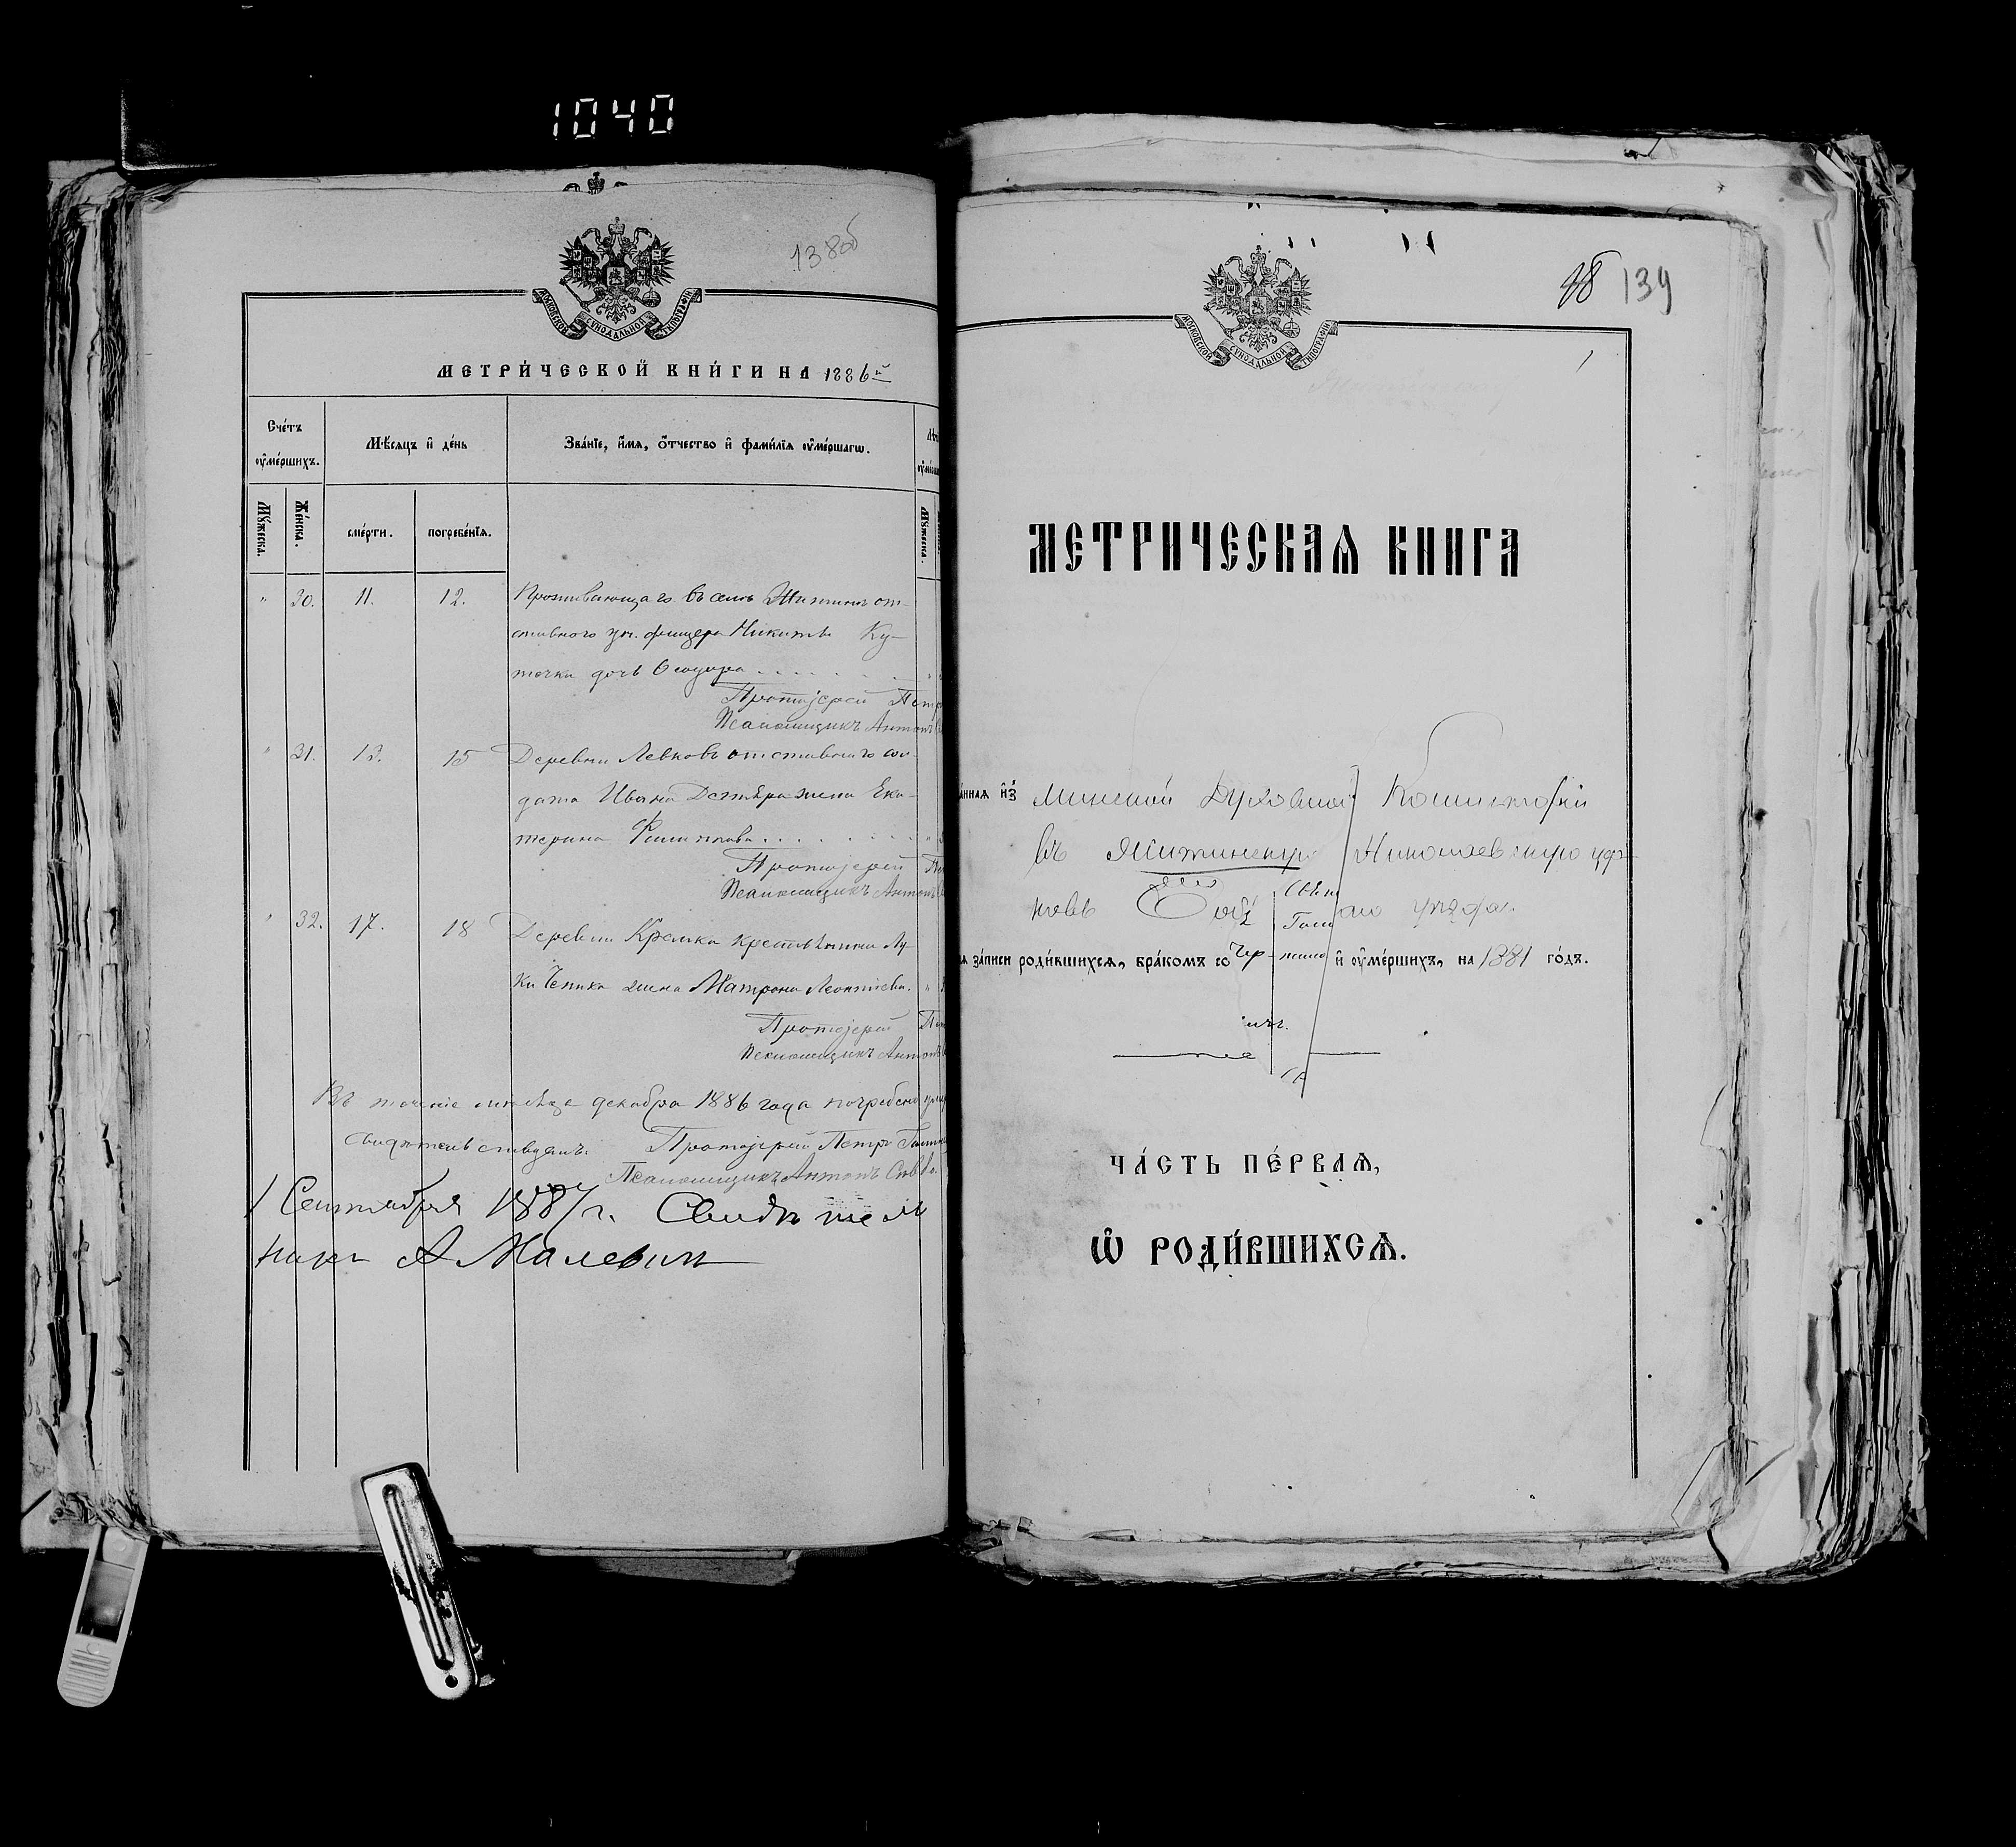 1040
138об
МОСКОВСКОЙ СѴНОДАЛЬНОЙ ТИПОГРАФІИ
МЕТРИ́ЧЕСКОЙ КНИ́ГИ НА 1886й
Сче́тъ оу҆ме́ршихъ.
Мѣ́сяцъ и҆ де́нь
Зва́нїе, и҆́мя, ѻ҆́тчество и҆ фами́лїя оу҆ме́ршагѡ.
Мꙋ́жеска.
Же́нска.
сме́рти.
погребе́нїя.
Мꙋ́жеска.
" 30. 11. 12. Проживающаго въ селѣ Житинѣ от-
ставного ун. фицера Никиты Ку-
точки дочь Ѳеодора
Протоіерей Петр
Псаломщикъ Антонъ
" 31. 13. 15 Деревни Левковъ отставного сол-
дата Ивана жена Ека-
терина Филиппова
Протоіерей
Псаломщикъ Антонъ
" 32. 17. 18 Деревни Крамка крестьянина Лу-
ки Чепика жена Матрона Леонтіева.
Протоіерей
Псаломщикъ Антонъ
Въ теченіе мѣсяца декабря 1886 года погребено
свидѣтельствуемъ. Протоіерей Петръ
Псаломщикъ Антонъ
1 Сентября 1887 г. Свидѣтел
А Малевич
139
МОСКОВСКОЙ СѴНОДАЛЬНОЙ ТИПОГРАФІИ
МЕТРИЧЕСКАѦ КНИГА
а́нная и҆з̾ Минской Духовной Консисторіи
въ Житинскую Николаевскую цер-
ковь Боб уѣзда.
я за́писи роди́вшихсѧ, бра́комъ со и҆ оу҆ме́ршихъ, на 1881 го́дъ.
ЧА́СТЬ ПЕ́РВАѦ,
Ѡ҆ РОДИ́ВШИХСѦ.